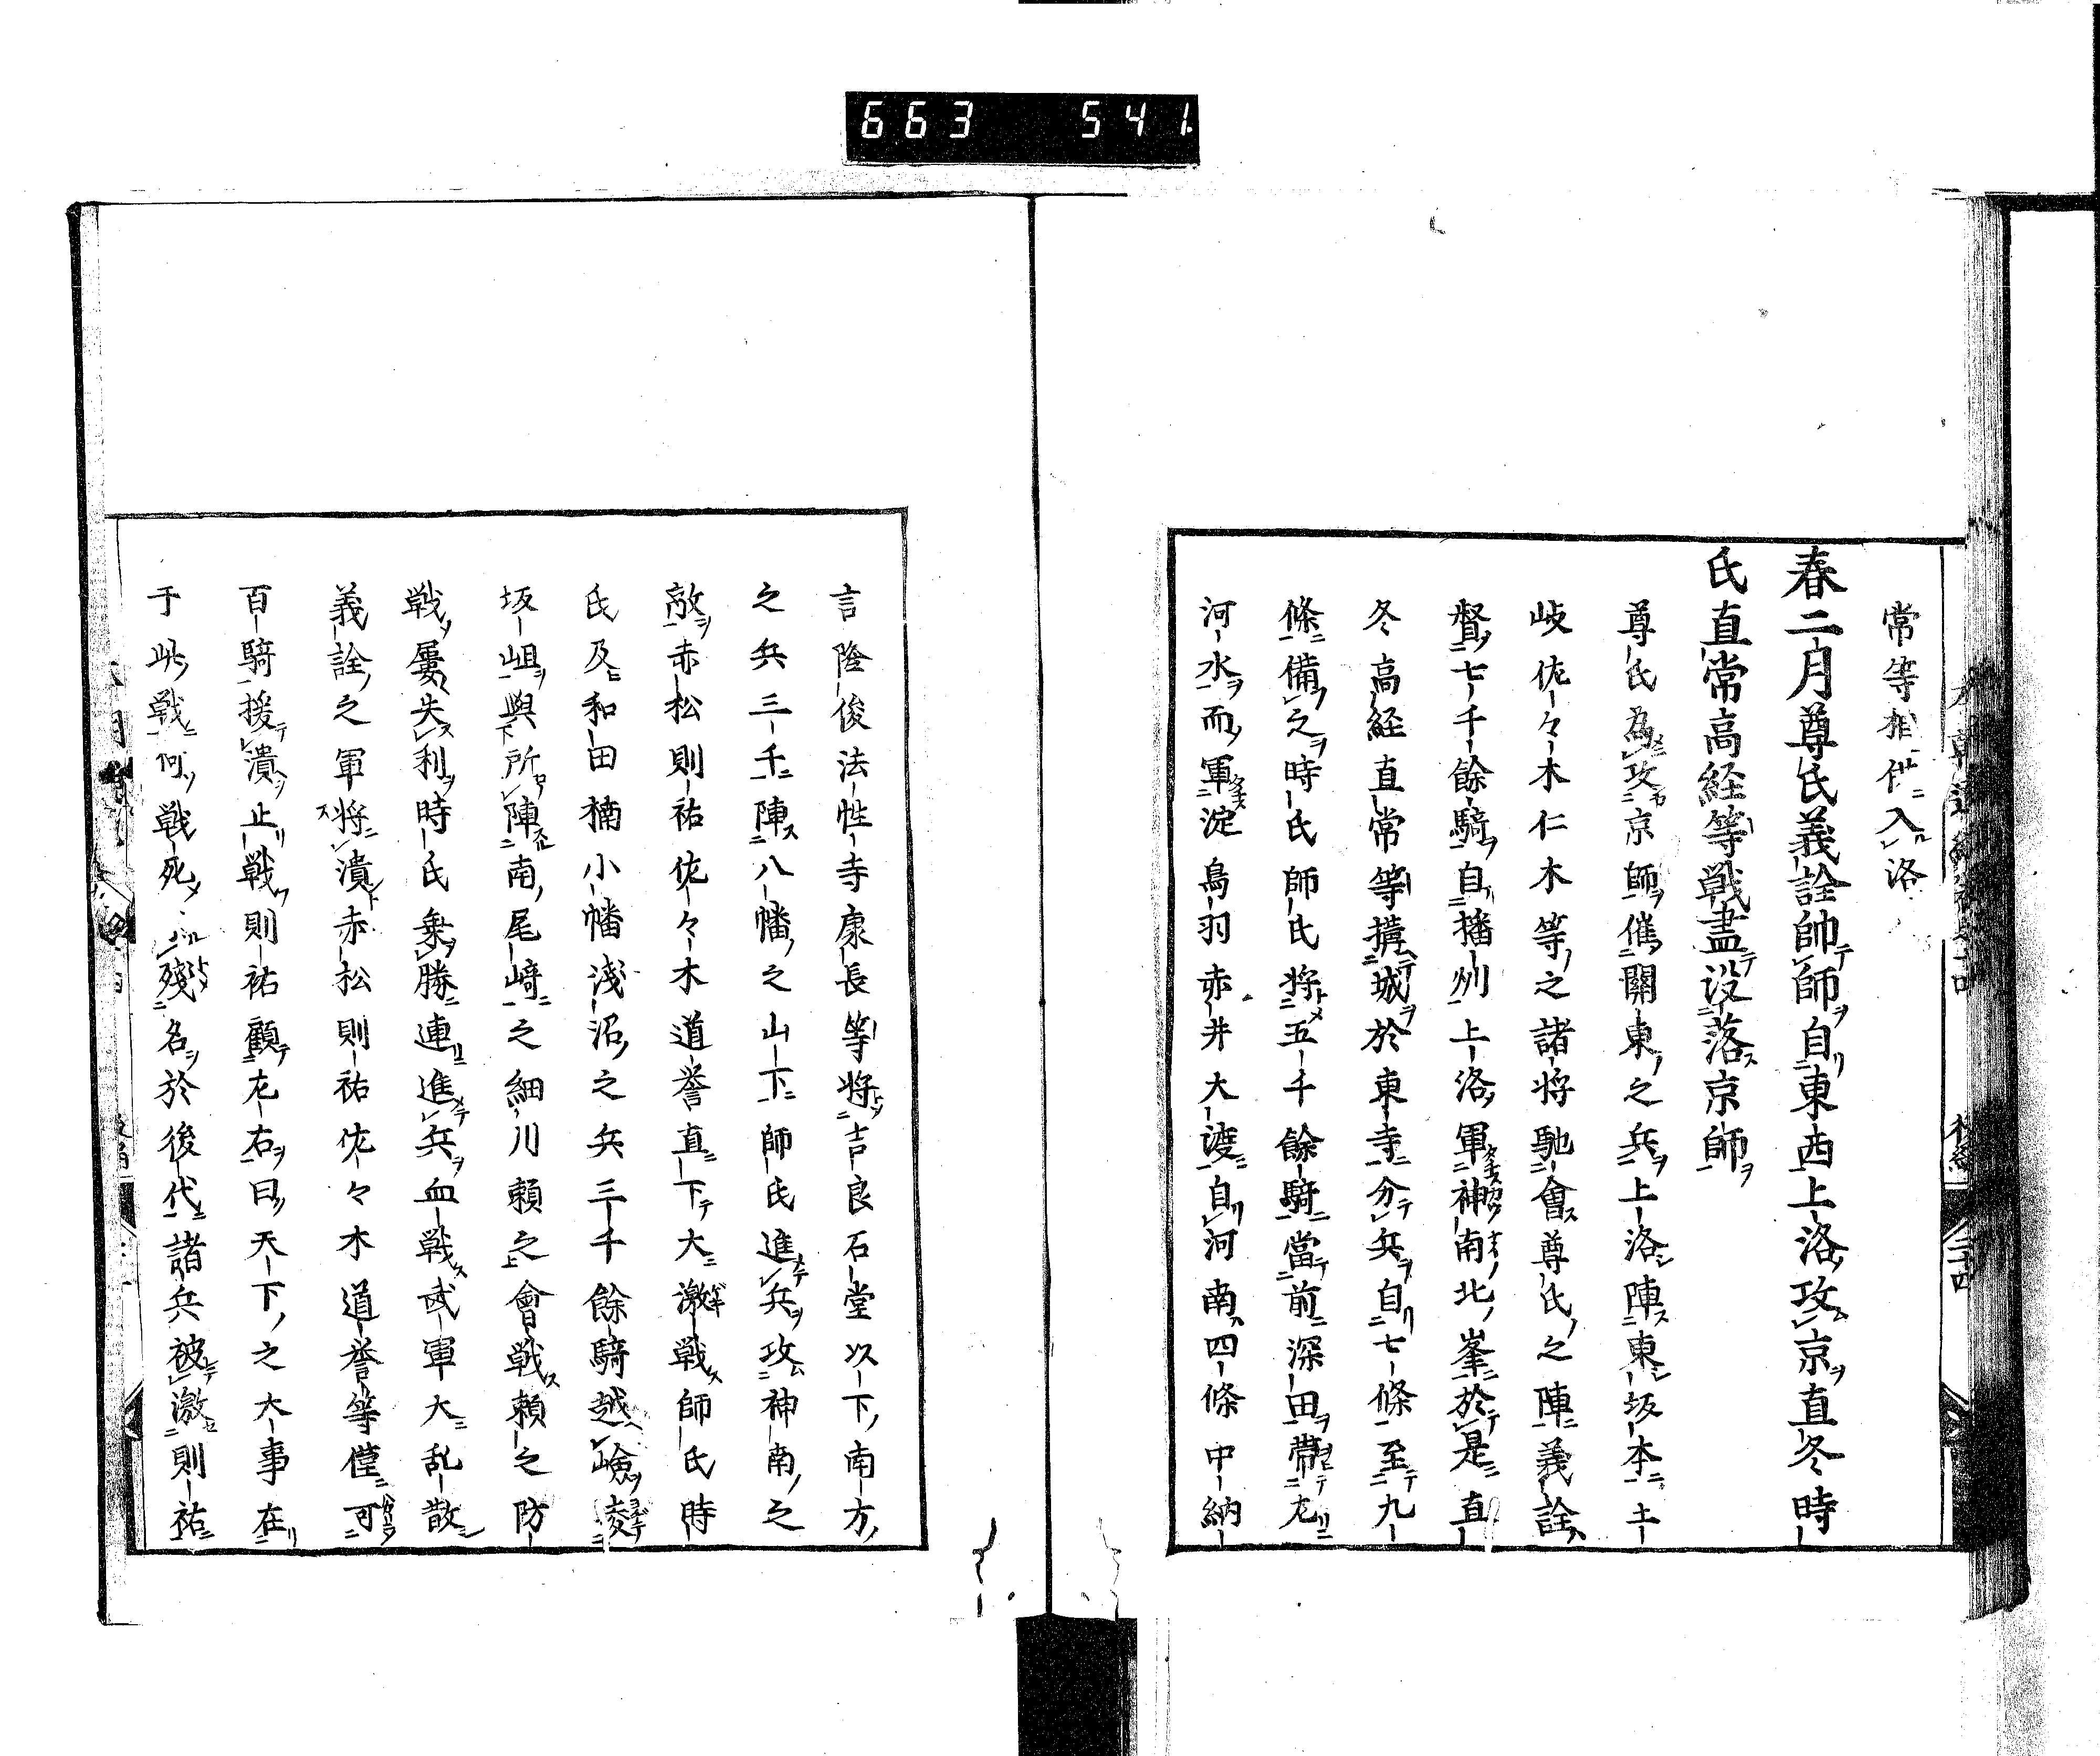 663 541
常等相伴入洛
春二月尊氏義詮帥師自東西上洛攻京直冬時
氏直常高経等戦盡没落京師
尊氏為攻京師催關東之兵上洛陣東坂本土
岐佐々木仁木等之諸将馳會尊氏之陣義詮
督七千餘騎自播州上洛軍神南北峯於是直
冬高経直常等搆城於東寺分兵自七條至九
條備之時氏師氏将五千餘騎當前深田帶左
河水而軍淀鳥羽赤井大渡自河南四條中納
言隆俊法性寺康長等将吉良石堂以下南方
之兵三千陣八幡之山下師氏進兵攻神南之
敵赤松則祐佐々木道誉直下大激戦師氏時
氏及和田楠小幡淺沼之兵三千餘騎越嶮凌
坂岨與所陣南尾崎之細川頼之會戦頼之防
戦屡失利時氏乗勝連進兵血戦武軍大乱散
義詮之軍将潰赤松則祐佐々木道誉等僅可
百騎援潰止戦則祐顧左右曰天下之大事在
于此戦何戦死残名於後代諸兵被激則祐